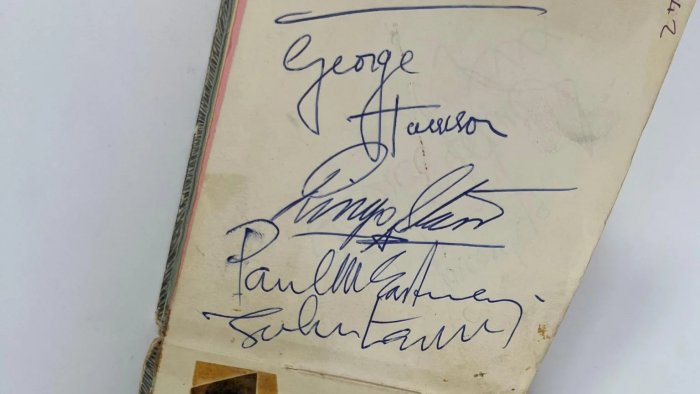 George
Harrison
Ringo Starr
Paul McCartney
John Lennon
42